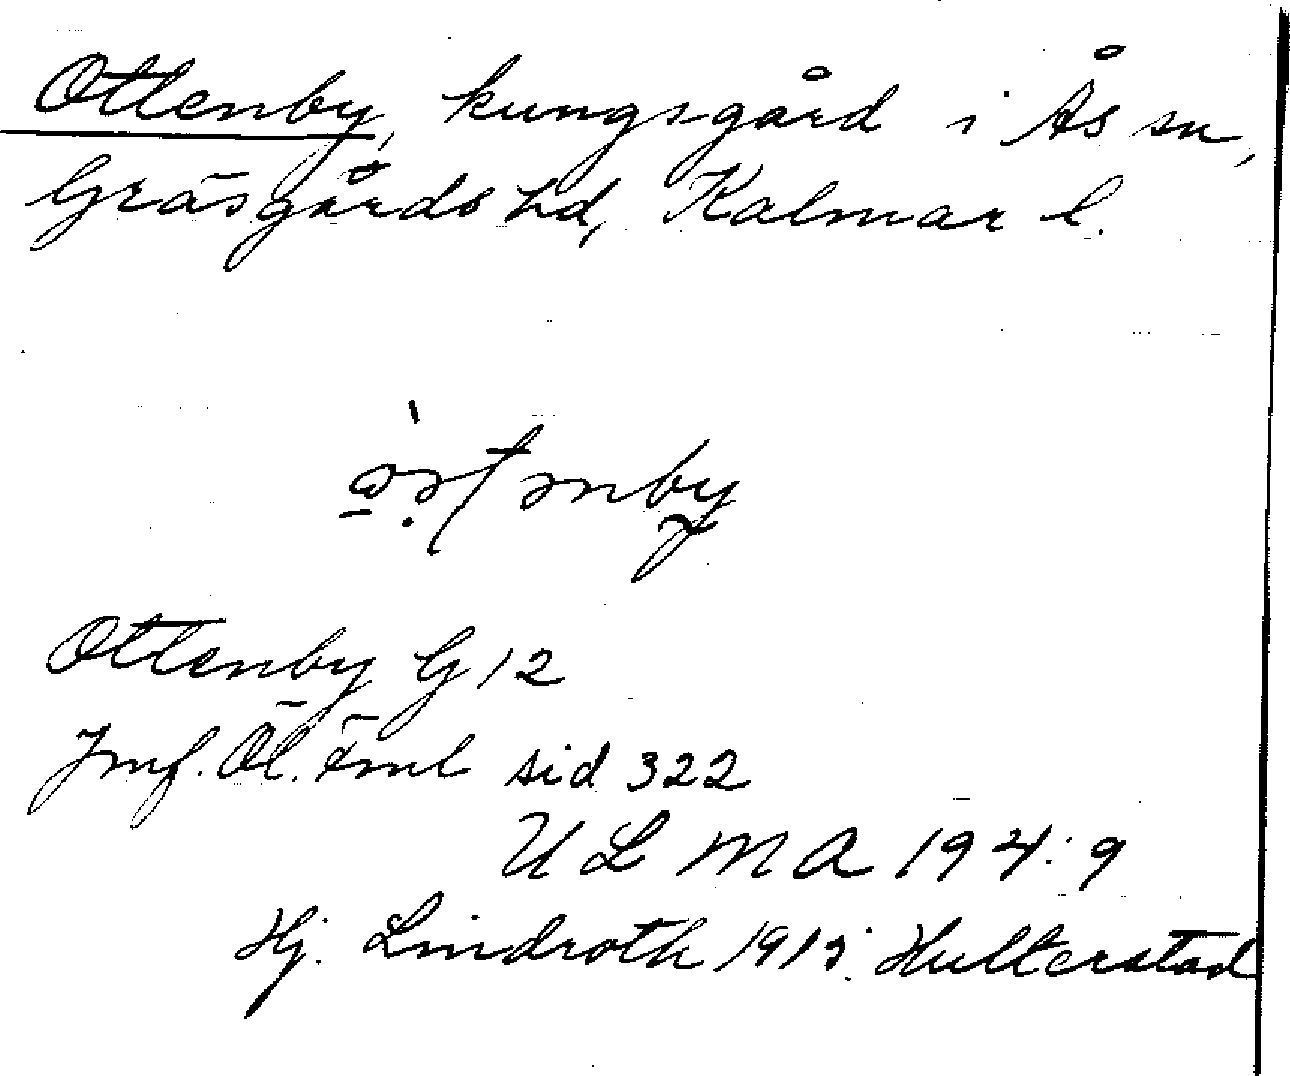 Ottenby, kungsgård i Ås sn,
Gräsgårds hd, Kalmar l.
Ottenby G 12
Jmf. Öl. Fml sid 322
U L M A 194:9
Hj. Lindroth 1915. Hulterstad